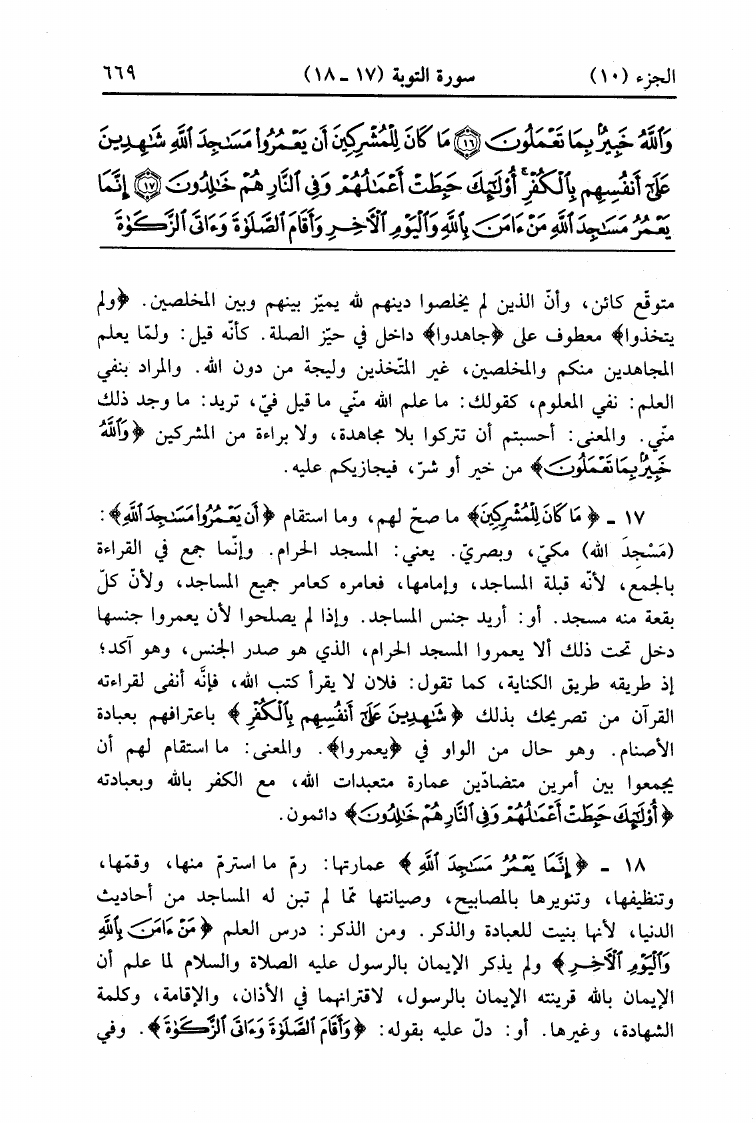 الجزء (١٠) سورة التوبة (١٧ ـ ١٨) ٦٦٩
وَٱللَّهُ خَبِيرٌۢ بِمَا تَعْمَلُونَ ۝١٦ مَا كَانَ لِلْمُشْرِكِينَ أَن يَعْمُرُوا۟ مَسَٰجِدَ ٱللَّهِ شَٰهِدِينَ
عَلَىٰٓ أَنفُسِهِم بِٱلْكُفْرِ ۚ أُو۟لَٰٓئِكَ حَبِطَتْ أَعْمَٰلُهُمْ وَفِى ٱلنَّارِ هُمْ خَٰلِدُونَ ۝١٧ إِنَّمَا
يَعْمُرُ مَسَٰجِدَ ٱللَّهِ مَنْ ءَامَنَ بِٱللَّهِ وَٱلْيَوْمِ ٱلْءَاخِرِ وَأَقَامَ ٱلصَّلَوٰةَ وَءَاتَى ٱلزَّكَوٰةَ
متوقّع كائن، وأنّ الذين لم يخلصوا دينهم لله يميّز بينهم وبين المخلصين. ﴿ولم
يتخذوا﴾ معطوف على ﴿جاهدوا﴾ داخل في حيّز الصلة. كأنّه قيل: ولمّا يعلم
المجاهدين منكم والمخلصين، غير المتّخذين وليجة من دون الله. والمراد بنفي
العلم: نفي المعلوم، كقولك: ما علم الله منّي ما قيل فيّ، تريد: ما وجد ذلك
منّي. والمعنى: أحسبتم أن تتركوا بلا مجاهدة، ولا براءة من المشركين ﴿وَٱللَّهُ
خَبِيرٌۢ بِمَا تَعْمَلُونَ﴾ من خير أو شرّ، فيجازيكم عليه.
١٧ ـ ﴿مَا كَانَ لِلْمُشْرِكِينَ﴾ ما صحّ لهم، وما استقام ﴿أَن يَعْمُرُوا۟ مَسَٰجِدَ ٱللَّهِ﴾:
(مَسْجِدَ الله) مكيّ، وبصريّ. يعني: المسجد الحرام. وإنّما جمع في القراءة
بالجمع، لأنّه قبلة المساجد، وإمامها، فعامره كعامر جميع المساجد، ولأنّ كلّ
بقعة منه مسجد. أو: أريد جنس المساجد. وإذا لم يصلحوا لأن يعمروا جنسها
دخل تحت ذلك ألا يعمروا المسجد الحرام، الذي هو صدر الجنس، وهو آكد؛
إذ طريقه طريق الكناية، كما تقول: فلان لا يقرأ كتب الله، فإنَّه أنفى لقراءته
القرآن من تصريحك بذلك ﴿شَٰهِدِينَ عَلَىٰٓ أَنفُسِهِم بِٱلْكُفْرِ﴾ باعترافهم بعبادة
الأصنام. وهو حال من الواو في ﴿يعمروا﴾. والمعنى: ما استقام لهم أن
يجمعوا بين أمرين متضادّين عمارة متعبدات الله، مع الكفر بالله وبعبادته
﴿أُو۟لَٰٓئِكَ حَبِطَتْ أَعْمَٰلُهُمْ وَفِى ٱلنَّارِ هُمْ خَٰلِدُونَ﴾ دائمون.
١٨ ـ ﴿إِنَّمَا يَعْمُرُ مَسَٰجِدَ ٱللَّهِ﴾ عمارتها: رمّ ما استرمّ منها، وقمّها،
وتنظيفها، وتنويرها بالمصابيح، وصيانتها ممّا لم تبن له المساجد من أحاديث
الدنيا، لأنها بنيت للعبادة والذكر. ومن الذكر: درس العلم ﴿مَنْ ءَامَنَ بِٱللَّهِ
وَٱلْيَوْمِ ٱلْءَاخِرِ﴾ ولم يذكر الإيمان بالرسول عليه الصلاة والسلام لما علم أن
الإيمان بالله قرينته الإيمان بالرسول، لاقترانهما في الأذان، والإقامة، وكلمة
الشهادة، وغيرها. أو: دلّ عليه بقوله: ﴿وَأَقَامَ ٱلصَّلَوٰةَ وَءَاتَى ٱلزَّكَوٰةَ﴾. وفي